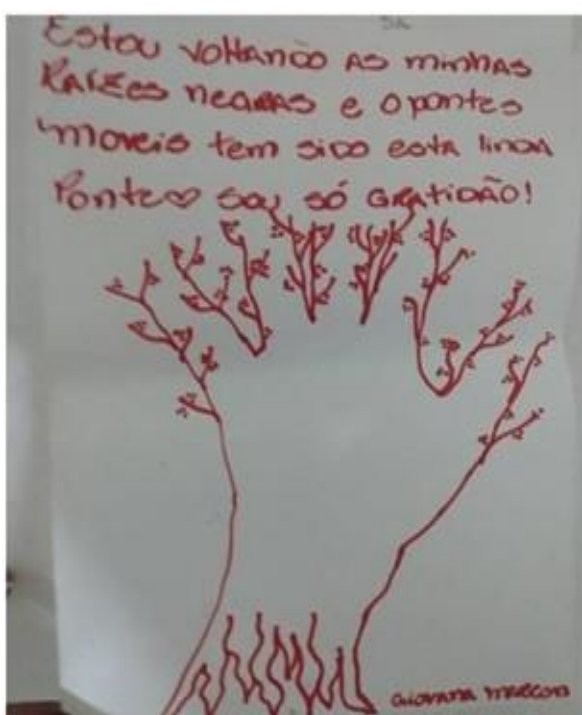 Estou voltando as minhas
Raízes negras e o pontes
móveis tem sido esta linda
Ponte♡ sou só GRATIDÃO!
Giovana